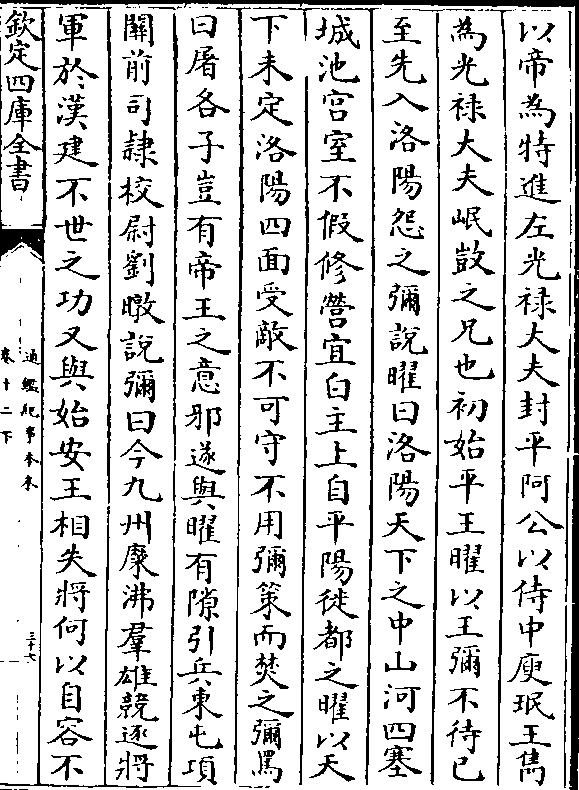 以帝為特進左光禄大夫封平阿公以侍中庾珉王雋
為光禄大夫岷敳之兄也初始平王曜以王彌不待已
至先入洛陽怨之彌說曜曰洛陽天下之中山河四塞
城池宫室不假修營宜白主上自平陽徙都之曜以天
下未定洛陽四面受敵不可守不用彌策而焚之彌罵
曰屠各子豈有帝王之意邪遂與曜有隙引兵東屯項
關前司隷校尉劉暾說彌曰今九州糜沸羣雄競逐將
軍於漢建不世之功又與始安王相失將何以自容不
欽定四庫全書
通鑑紀事本末
卷十二下
三十六